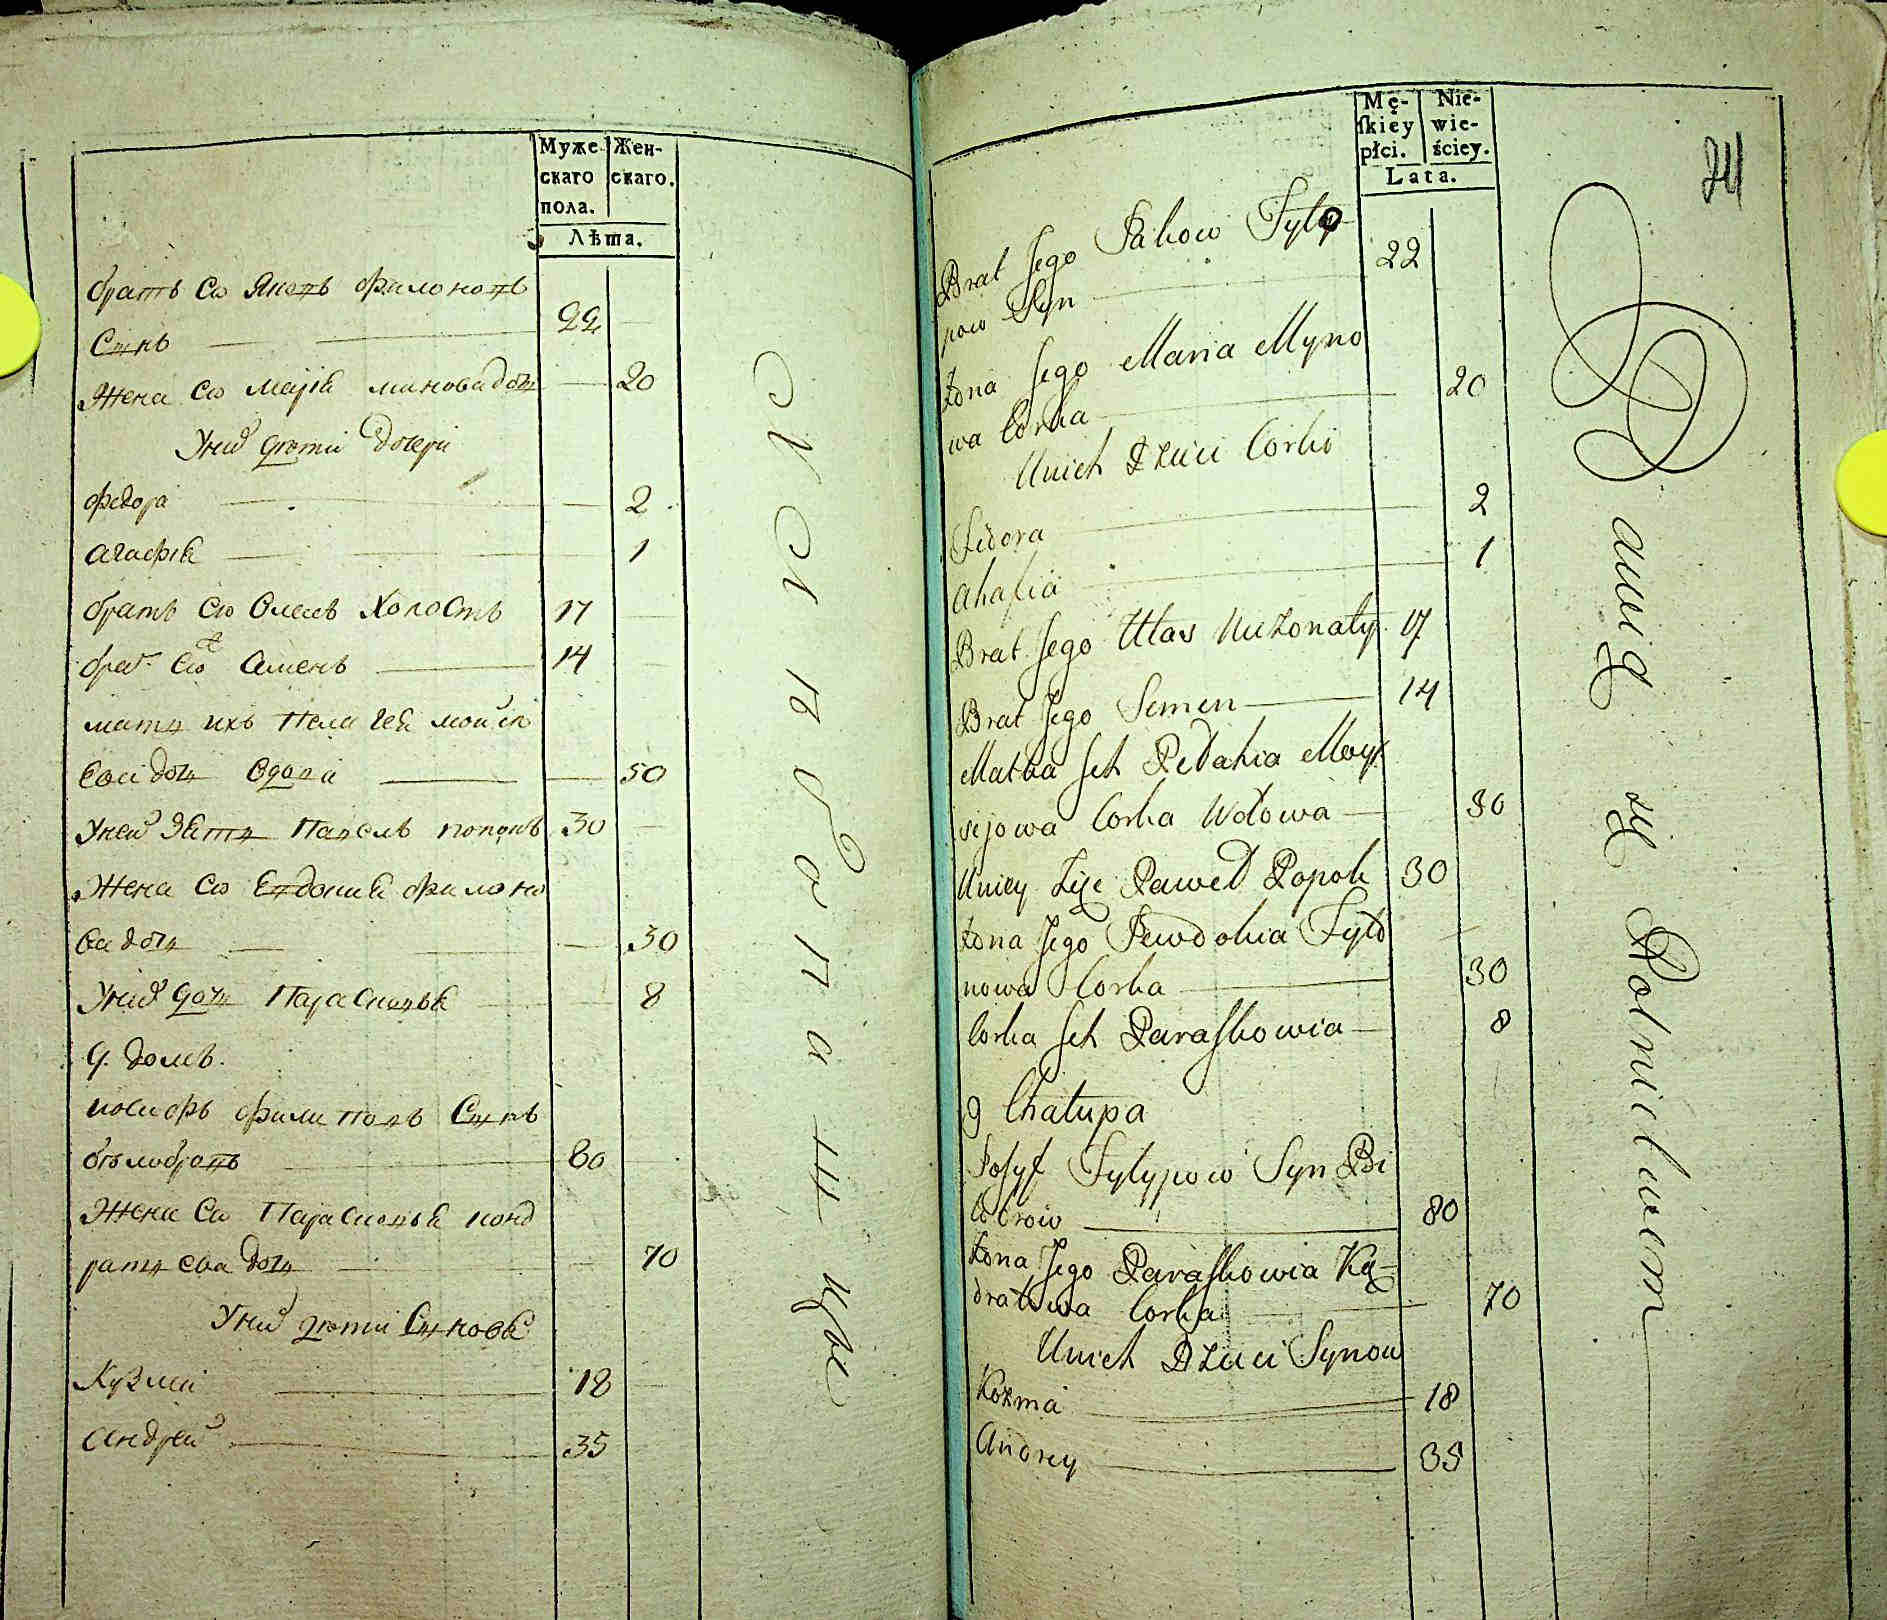 Муже
скаго
пола.
Жен-
скаго.
Лѣта.
братъ его Яковъ филоновъ
Сынъ 22
Жена его Марія минова дочь 20
У них дѣти дочери
федора 2
агафія 1
братъ его Власъ Холостъ 17
брат его Семенъ 14
мать ихъ Пелагея мойсе
ева дочь вдова 50
У ней зять Павелъ попокъ 30
Жена его Евдокия филоно
ва дочь 30
У них дочь Парасковья 8
9. домъ.
иосифъ филиповъ Сынъ
бѣлобровъ 80
Жена его Парасковья конд
ратьева дочь 70
У них дѣти Сыновья
Кузма 18
андрей 35
хлебопашцы
Mę-
ſkiey
płci.
Nie-
wie-
ściey.
Lata.
24
Brat Jego Jakow Fyly-
pow Syn 22
Żona Jego Maria Myno
wa Corka 20
U nich Dzieci Corki
Fidora 2
Ahafia 1
Brat Jego Ułas Nieżonaty 17
Brat Jego Semen 14
Matka Ich Pełahia Moy-
sejowa Corka Wdowa 30
U niey Zięc Paweł Popok 30
Żona Jego Jewdokia Fyło
nowa Corka 30
Corka Ich Paraſkowia 8
9 Chałupa
Josyf Fylypow Syn Bi
łobrow 80
Żona Jego Paraſkowia Ką-
dratowa Corka 70
U nich Dzieci Synow
Kozma 18
Andrey 35
Bawią się Rolnictwem